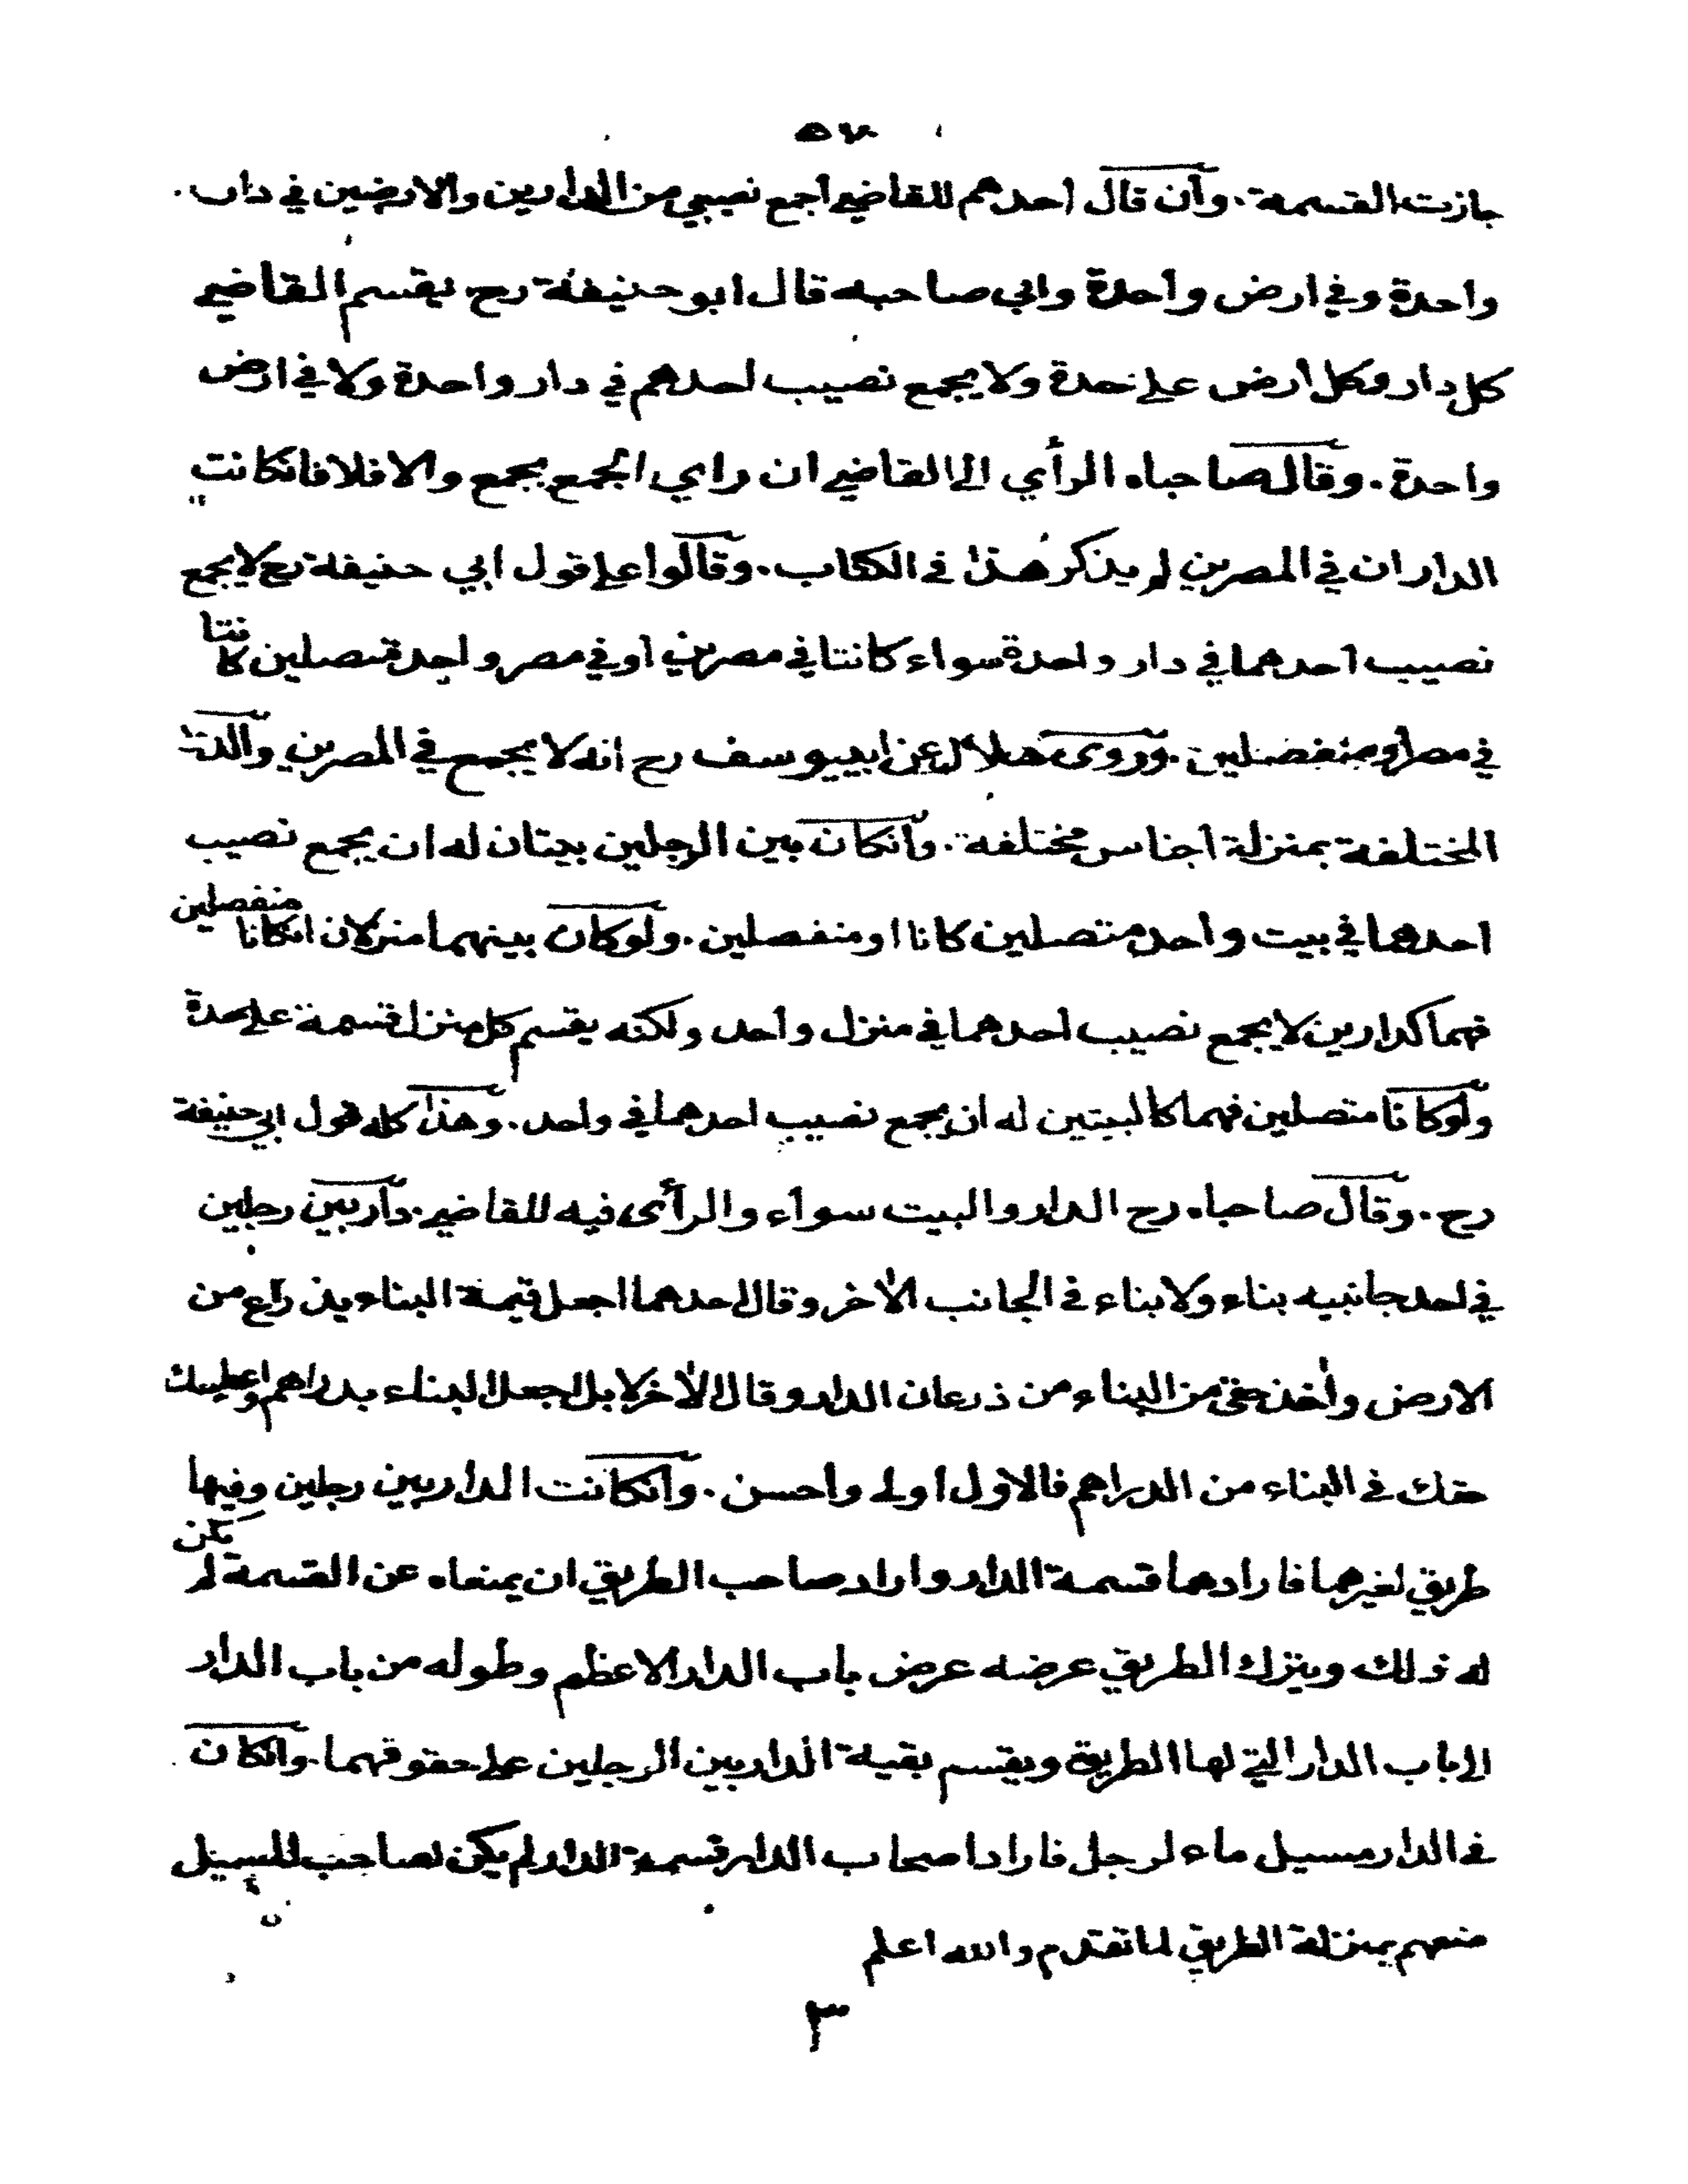 ٥٧
جازت القسمة . وان قال احدهم للقاضي اجمع نصيبي من الدارين والارضين في دار
واحدة وفي ارض واحدة وابي صاحبه قال ابو حنيفة رح يقسم القاضي
كل دار وكل ارض على حدة ولا يجمع نصيب احدهم في دار واحدة ولا في ارض
واحدة . وقال صاحباه الرأي الى القاضي ان راي الجمع يجمع والا فلا فانكانت
الداران في المصرين لم يذكر هذا في الكتاب . وقالوا على قول ابي حنيفة رح لا يجمع
نصيب احدهما في دار واحدة سواء كانتا في مصرين او في مصر واحد متصلين كانتا
في مصر او منفصلين . وروى هلال عن ابي يوسف رح انه لا يجمع في المصرين والدتا
المختلفة بمنزلة اجناس مختلفة . وانكان بين الرجلين بيتان له ان يجمع نصيب
احدهما في بيت واحد متصلين كانا او منفصلين . ولو كان بينهما منزلان انكانا منفصلين
فهما كدارين لا يجمع نصيب احدهما في منزل واحد ولكنه يقسم كل منزل قسمة على حدة
ولو كانا متصلين فهما كالبيتين له ان يجمع نصيب احدهما في واحد . وهذا كله قول ابي حنيفة
رح . وقال صاحباه رح الدار والبيت سواء والرأى فيه للقاضي . دار بين رجلين
في احد جانبيه بناء ولا بناء في الجانب الأخر وقال احدهما اجعل قيمة البناء بذراع من
الارض وأخذ حقى من البناء من ذرعان الدار وقال الأخر لا بل اجعل البناء بدراهم واعطيك
حقك في البناء من الدراهم فالاول اولى واحسن . وانكانت الدار بين رجلين وفيها
طريق لغيرهما فارادهما قسمة الدار واراد صاحب الطريق ان يمنعاه عن القسمة لم يكن
له ذلك ويترك الطريق عرضه عرض باب الدار الاعظم وطوله من باب الدار
الى باب الدار التي لها الطريق ويقسم بقية الدار بين الرجلين على حقوقهما . وانكان
في الدار مسيل ماء لرجل فاراد اصحاب الدار قسمة الدار لم يكن لصاحب المسيل
منعهم بمنزلة الطريق لما تقدم والله اعلم
٣